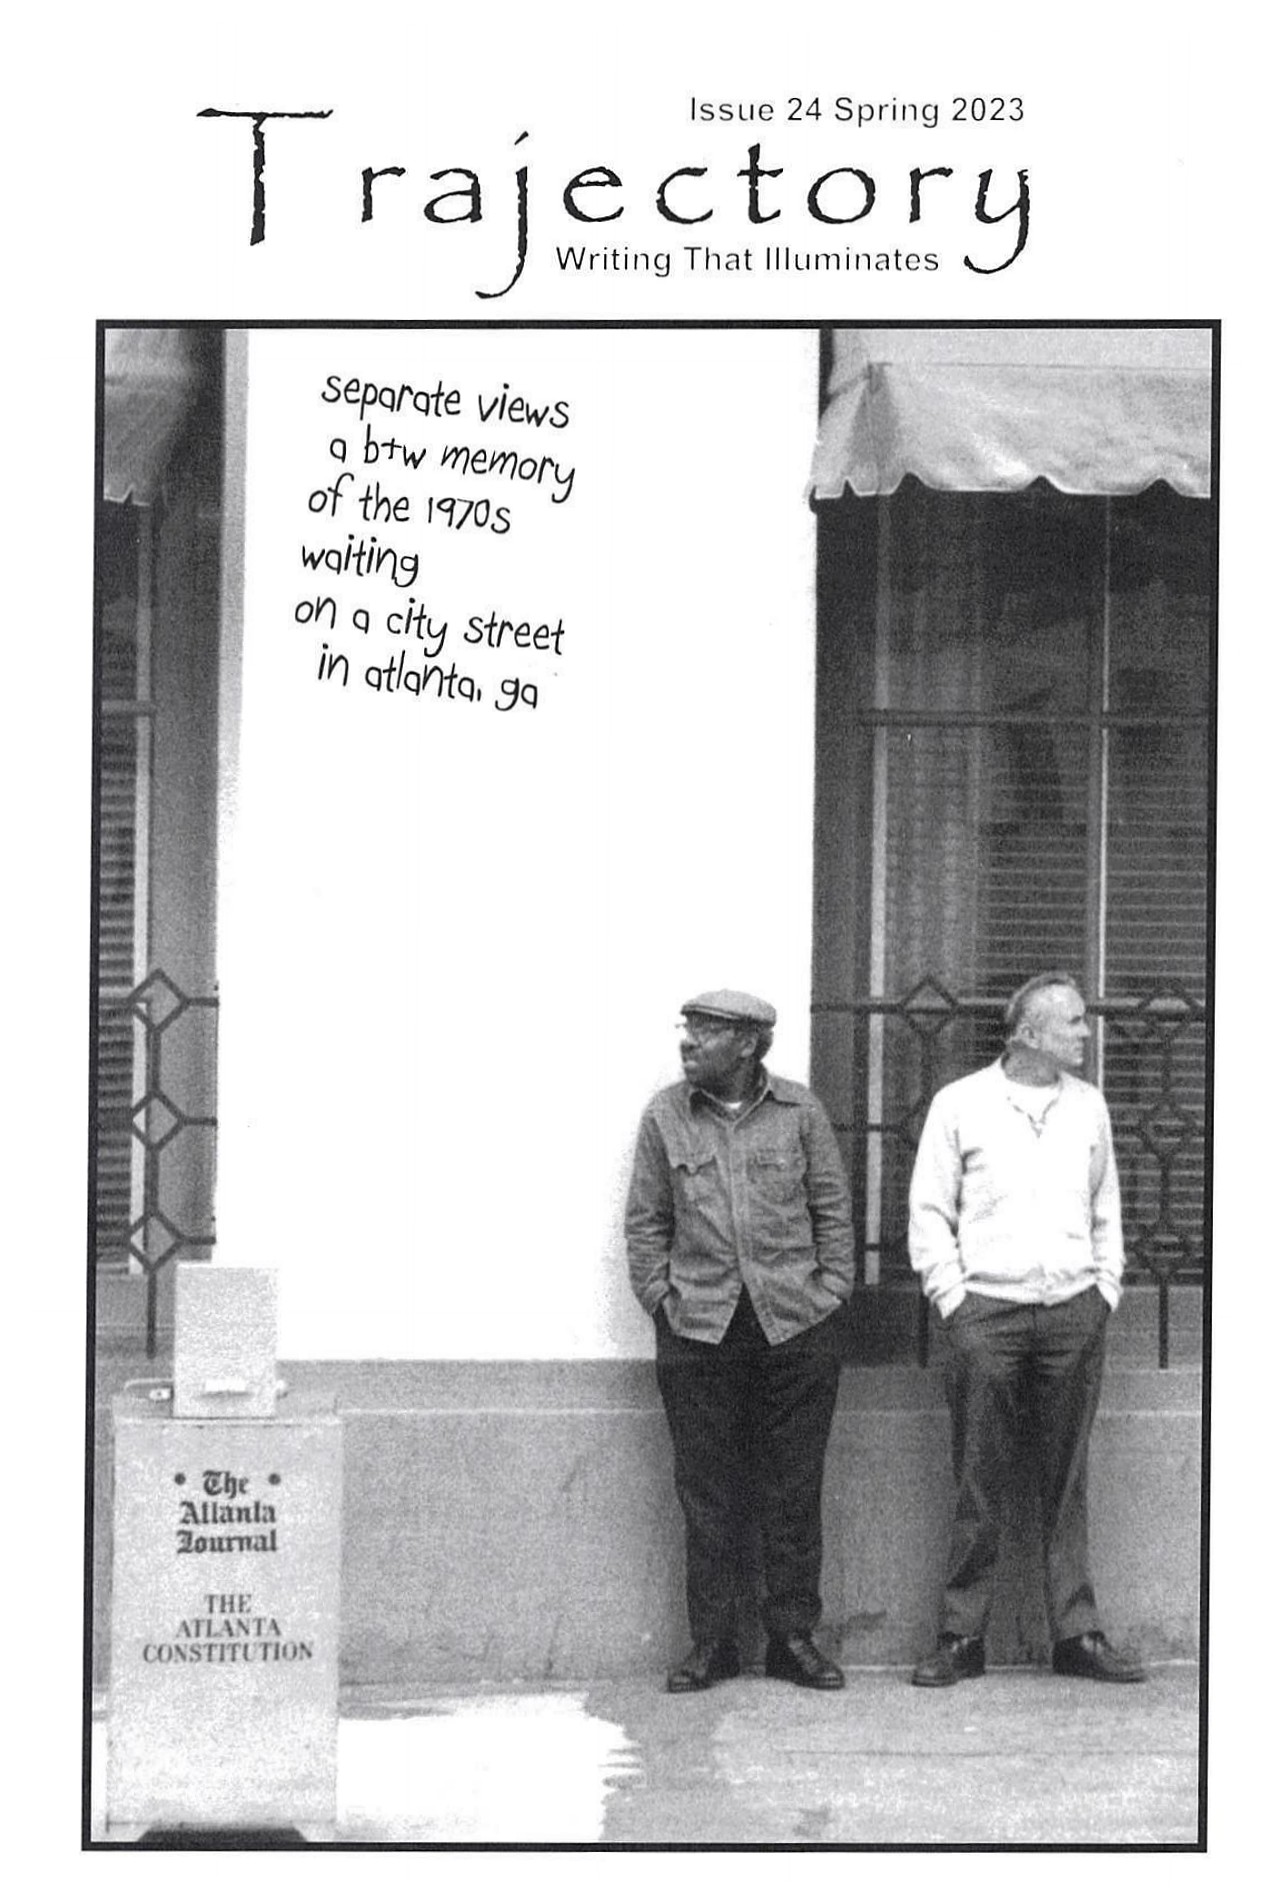 Issue 24 Spring 2023
Trajectory
Writing That Illuminates
separate views
a b+w memory
of the 1970s
waiting
on a city street
in atlanta, ga
• The •
Atlanta
Journal
THE
ATLANTA
CONSTITUTION